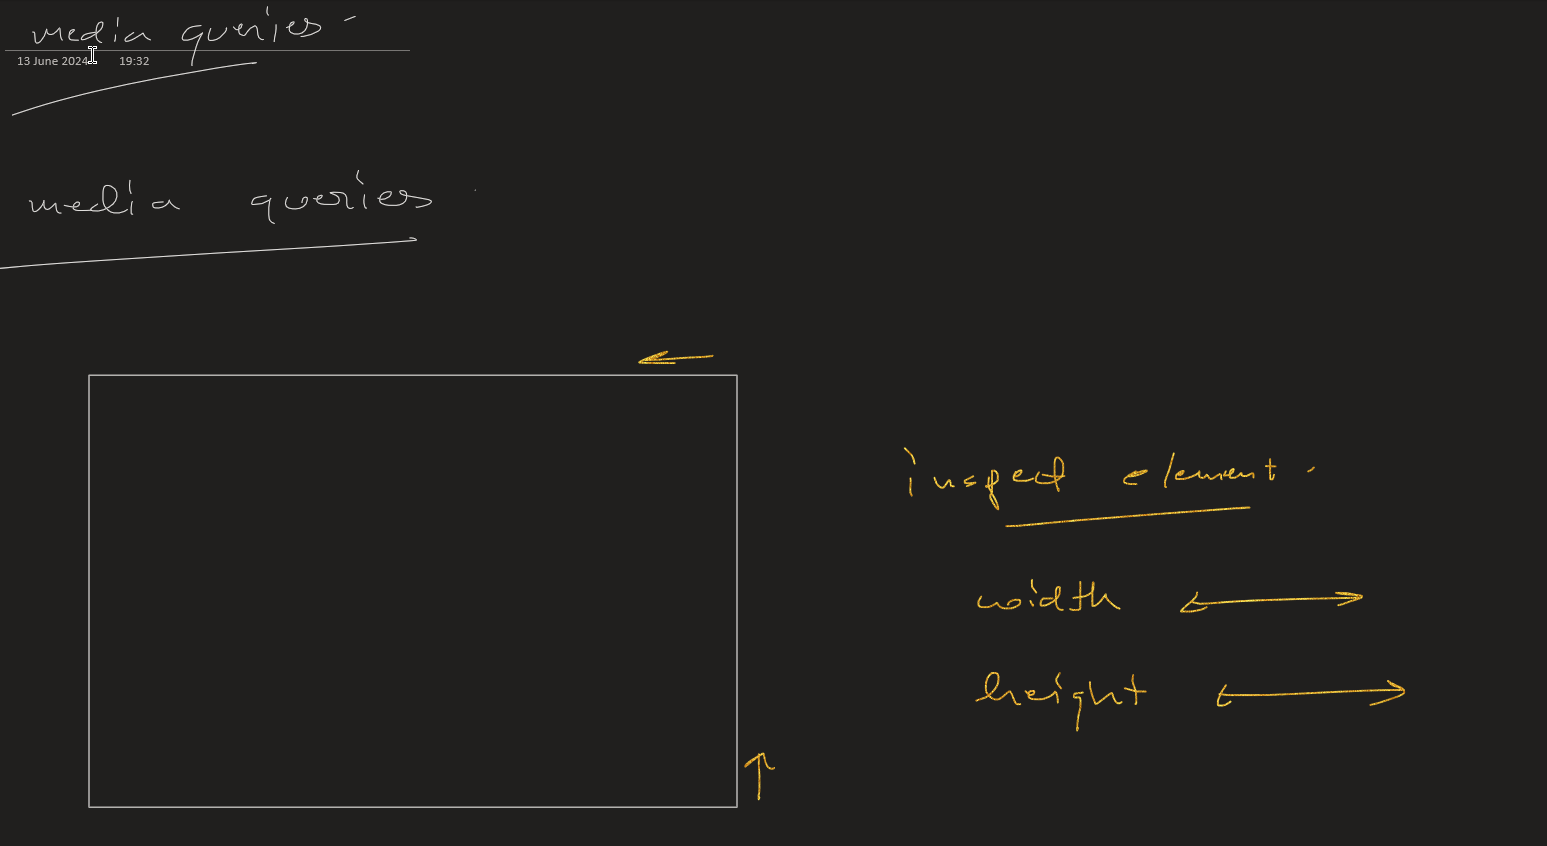 media queries
13 June 2024 19:32
media queries
inspect element
width
height